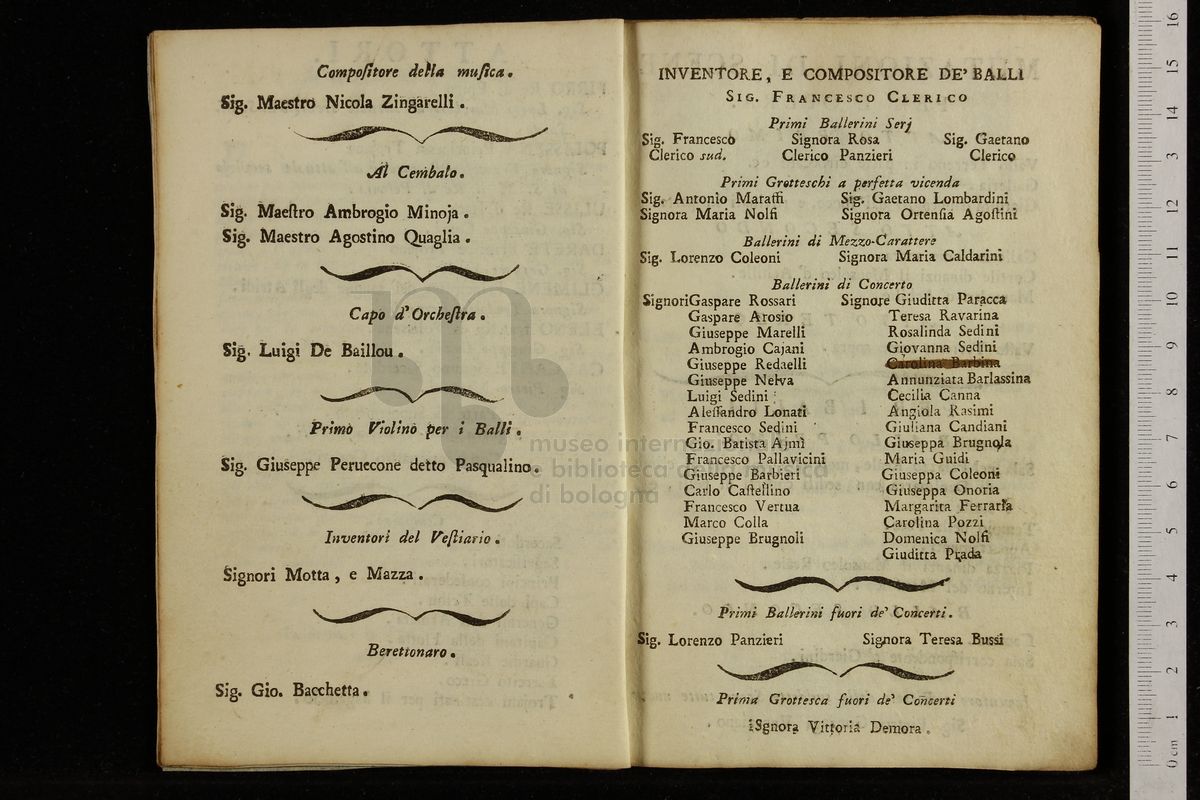 Compoſitore della muſica.
Sig. Maestro Nicola Zingarelli.
Al Cembalo.
Sig. Maeſtro Ambrogio Minoja.
Sig. Maestro Agostino Quaglia.
Capo d'Orcheſtra.
Sig. Luigi De Baillou.
Primo Violino per i Balli.
Sig. Giuseppe Peruccone detto Pasqualino.
Inventori del Veſtiario.
Signori Motta, e Mazza.
Berettonaro.
Sig. Gio. Bacchetta.
INVENTORE, E COMPOSITORE DE' BALLI
SIG. FRANCESCO CLERICO
Primi Ballerini Serj
Sig. Francesco Signora Rosa Sig. Gaetano
Clerico sud. Clerico Panzieri Clerico
Primi Grotteschi a perfetta vicenda
Sig. Antonio Maraffi Sig. Gaetano Lombardini
Signora Maria Nolfi Signora Ortenſia Agoſtini
Ballerini di Mezzo-Carattere
Sig. Lorenzo Coleoni Signora Maria Caldarini
Ballerini di Concerto
SignoriGaspare Rossari Signore Giuditta Paracca
Gaspare Arosio Teresa Ravarina
Giuseppe Marelli Rosalinda Sedini
Ambrogio Cajani Giovanna Sedini
Giuseppe Redaelli Carolina Barbina
Giuseppe Nelva Annunziata Barlassina
Luigi Sedini Cecilia Canna
Aleſſandro Lonati Angiola Rasimi
Francesco Sedini Giuliana Candiani
Gio. Batista Ajmì Giuseppa Brugnola
Francesco Pallavicini Maria Guidi
Giuseppe Barbieri Giuseppa Coleoni
Carlo Caſtellino Giuseppa Onoria
Francesco Vertua Margarita Ferraria
Marco Colla Carolina Pozzi
Giuseppe Brugnoli Domenica Nolfi
Giuditta Prada
Primi Ballerini fuori de' Concerti.
Sig. Lorenzo Panzieri Signora Teresa Bussi
Prima Grottesca fuori de' Concerti
iSgnora Vittoria Demora.
museo
biblioteca della musica
di bologna
0 cm 1 2 3 4 5 6 7 8 9 10 11 12 13 14 15 16